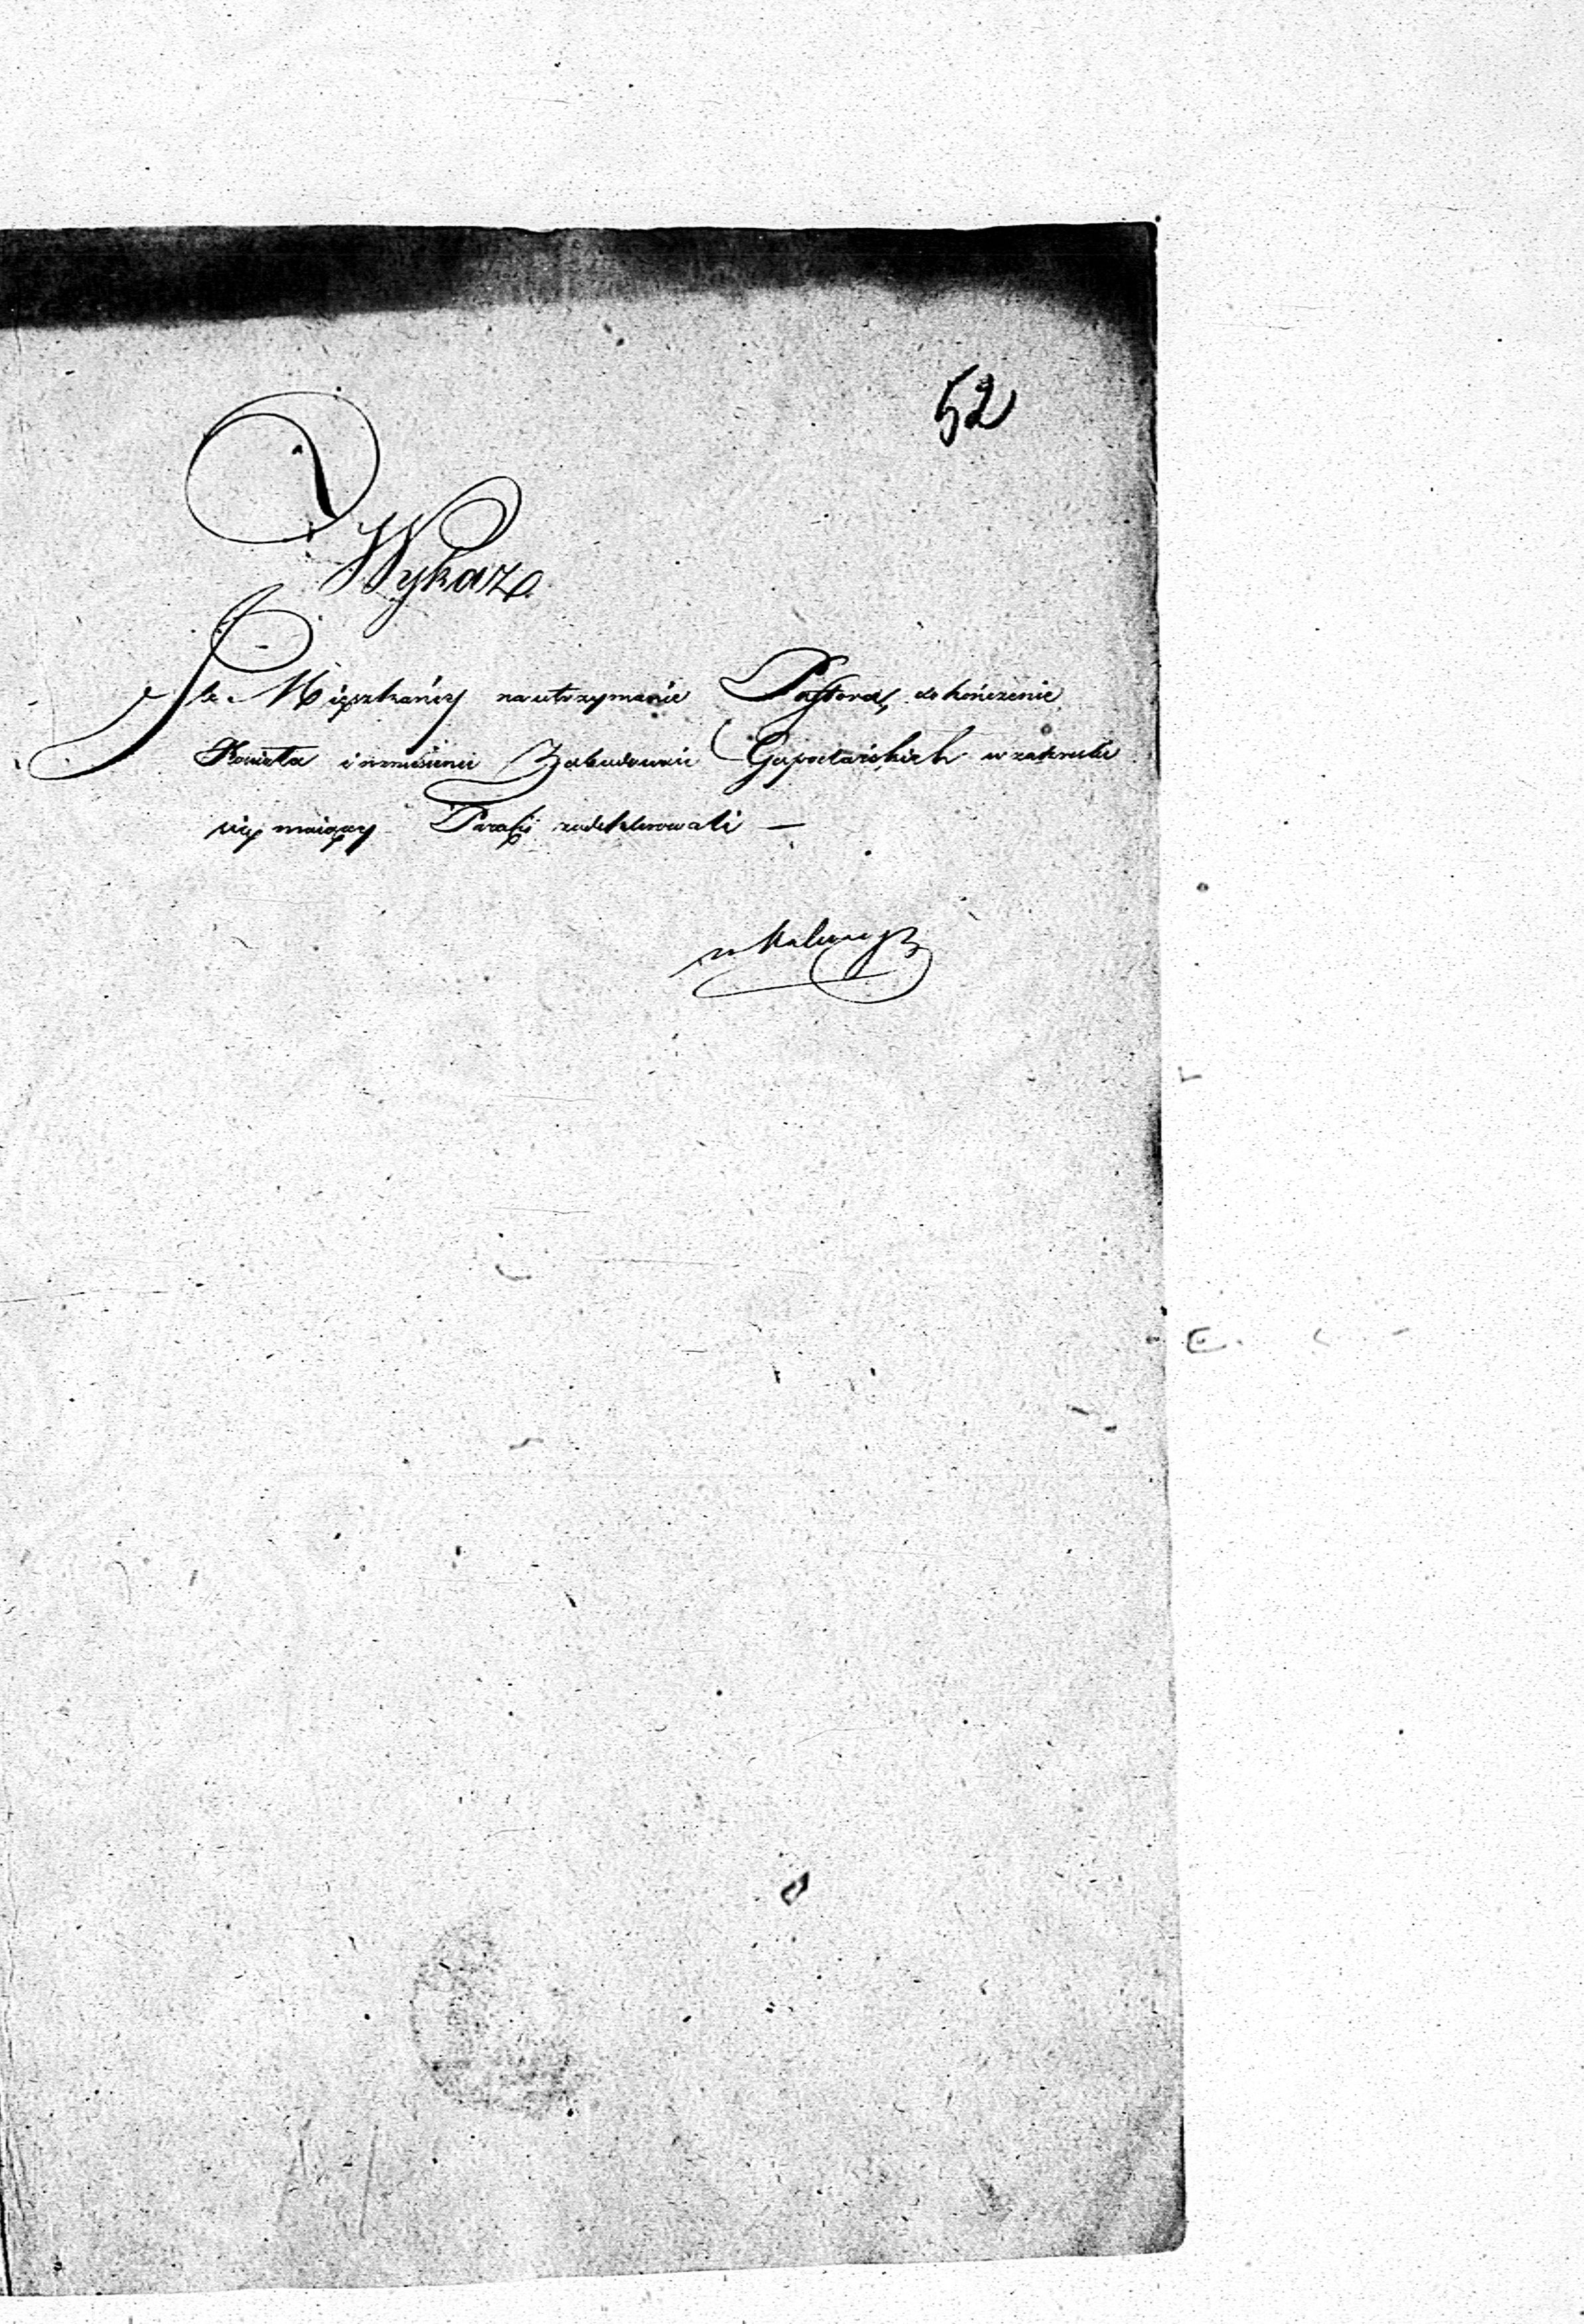 52
Wykaz
Ile Mięszkańcy na utrzymanie Pastora, dokończenie
Kościoła i wzniesienie Zabudowań Gospodarskich w zakresie
się maiącey Parafii zadeklarowali —